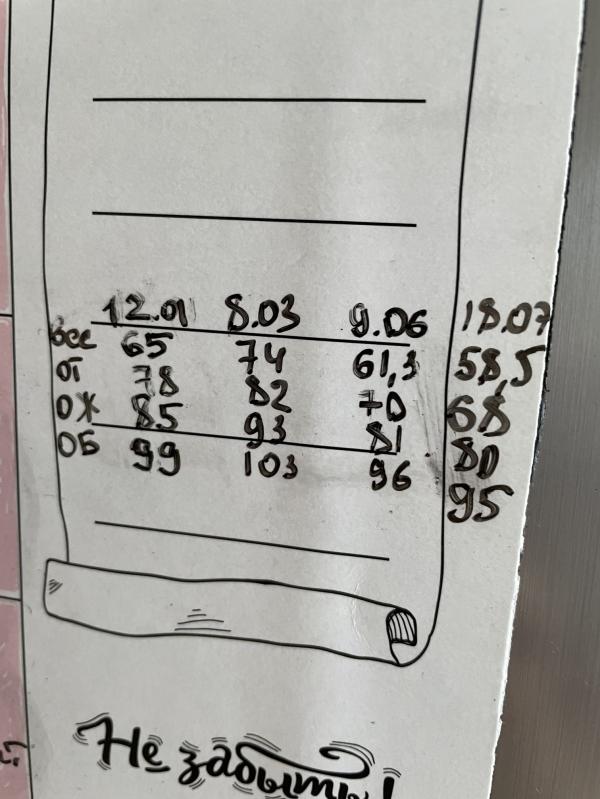 12.01 8.03 9.06 18.07
вес 65 74 61,3 58,5
ОТ 78 82 70 68
ОЖ 85 93 81 80
ОБ 99 103 96 95
Не забыть!